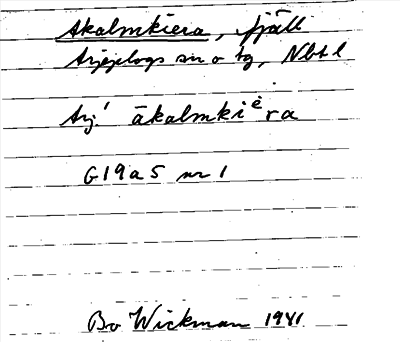 Akalmkiera, fjäll
Arjeplogs sn o tg, Nbt l
Arj. ākalmkiėra
G19a5 nr 1
Bo Wickman 1941